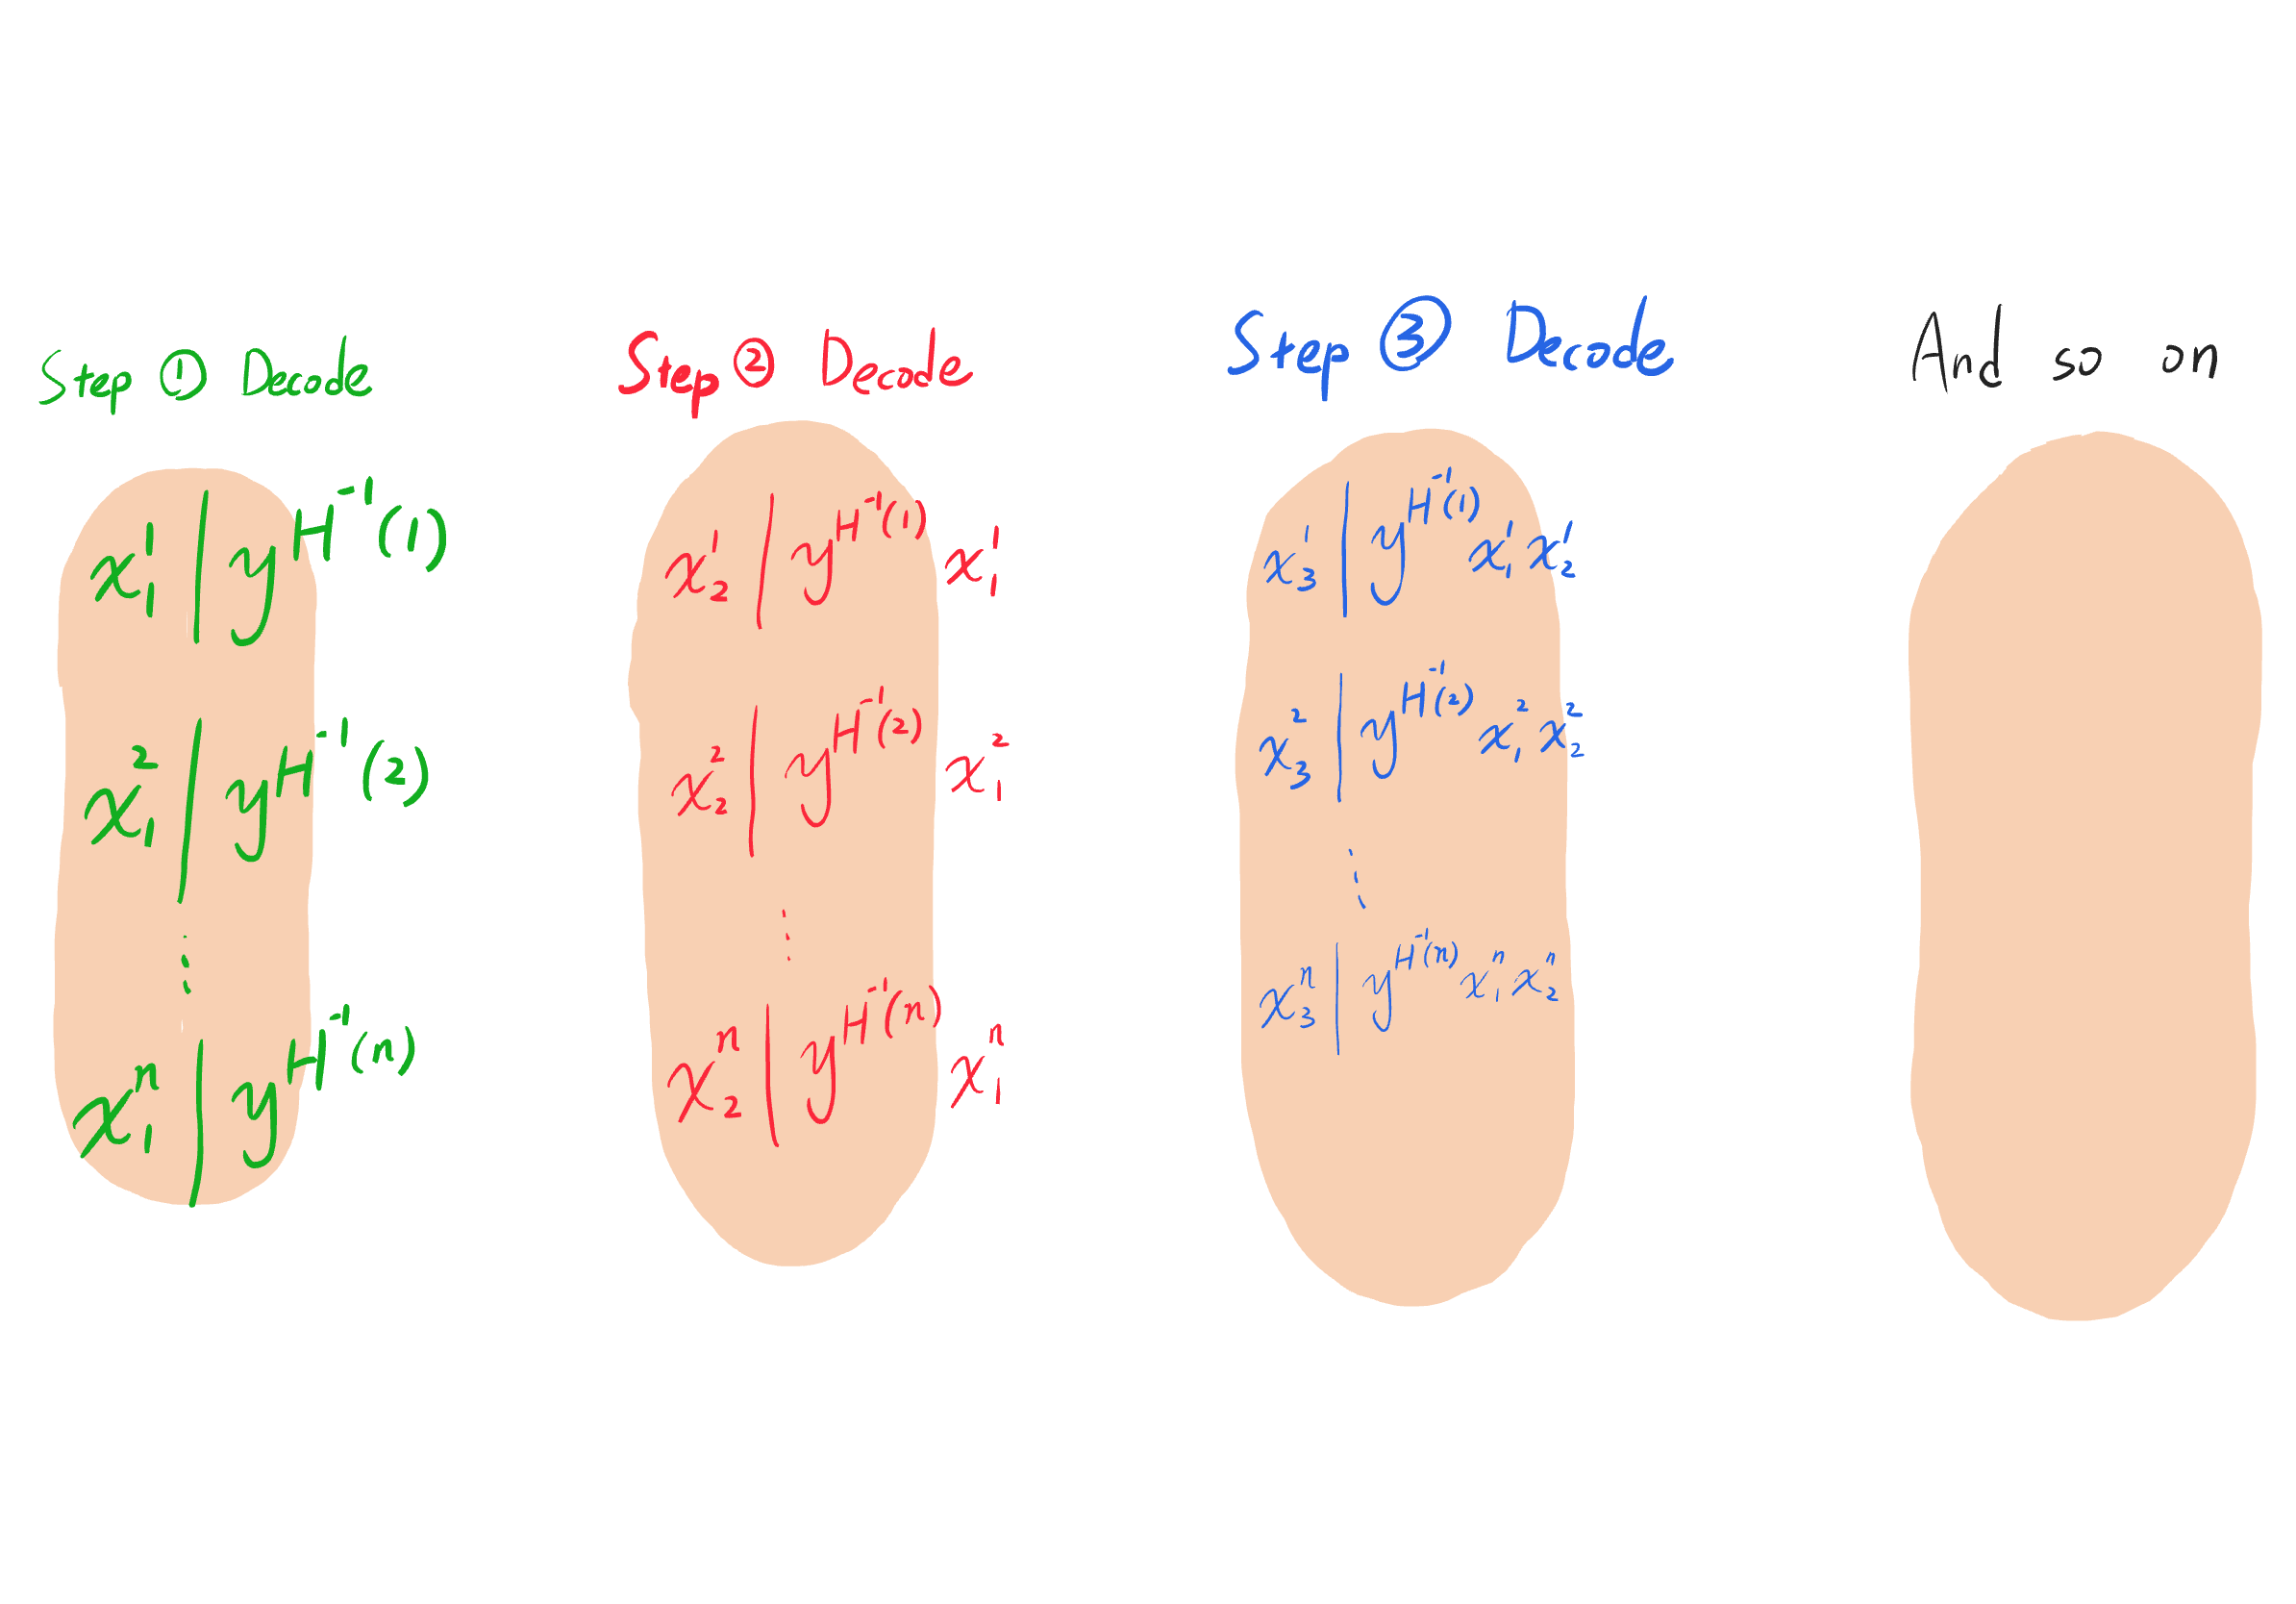 Step ① Decode
x₁¹ | y^{H⁻¹(1)}
x₁² | y^{H⁻¹(2)}
⋮
x₁ⁿ | y^{H⁻¹(n)}
Step ② Decode
x₂¹ | y^{H⁻¹(1)} x₁¹
x₂² | y^{H⁻¹(2)} x₁²
⋮
x₂ⁿ | y^{H⁻¹(n)} x₁ⁿ
Step ③ Decode
x₃¹ | y^{H⁻¹(1)} x₁¹ x₂¹
x₃² | y^{H⁻¹(2)} x₁² x₂²
⋮
x₃ⁿ | y^{H⁻¹(n)} x₁ⁿ x₂ⁿ
And so on